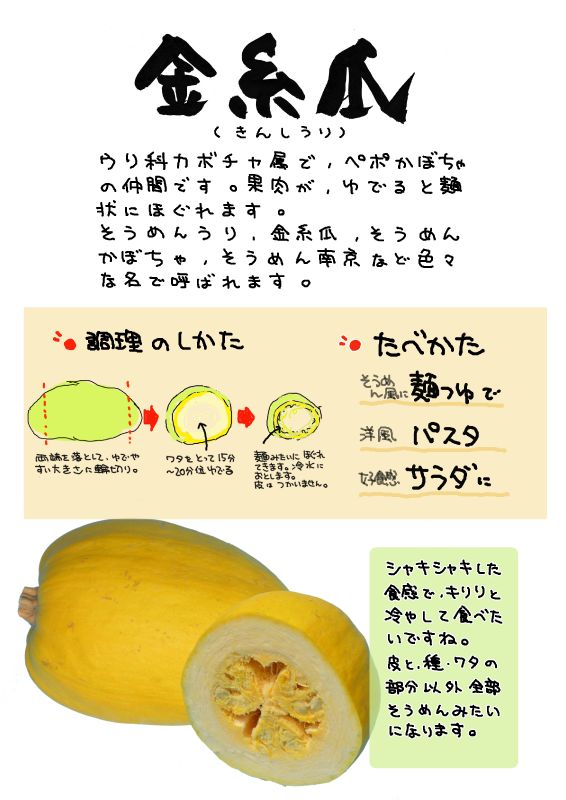 金糸瓜
(きんしうり)
ウリ科カボチャ属で,ペポかぼちゃ
の仲間です。果肉が,ゆでると麺
状にほぐれます。
そうめんうり,金糸瓜,そうめん
かぼちゃ,そうめん南京など色々
な名で呼ばれます。
調理のしかた
両端を落として、ゆでや
すい大きさに輪切り。
ワタをとって15分
~20分位ゆでる
麺みたいにほぐれ
てきます。冷水に
おとします。
皮はつかいません。
たべかた
そうめ
ん風に 麺つゆで
洋風 パスタ
好食感 サラダに
シャキシャキした
食感で,キリリと
冷やして食べた
いですね。
皮と,種・ワタの
部分以外全部
そうめんみたい
になります。